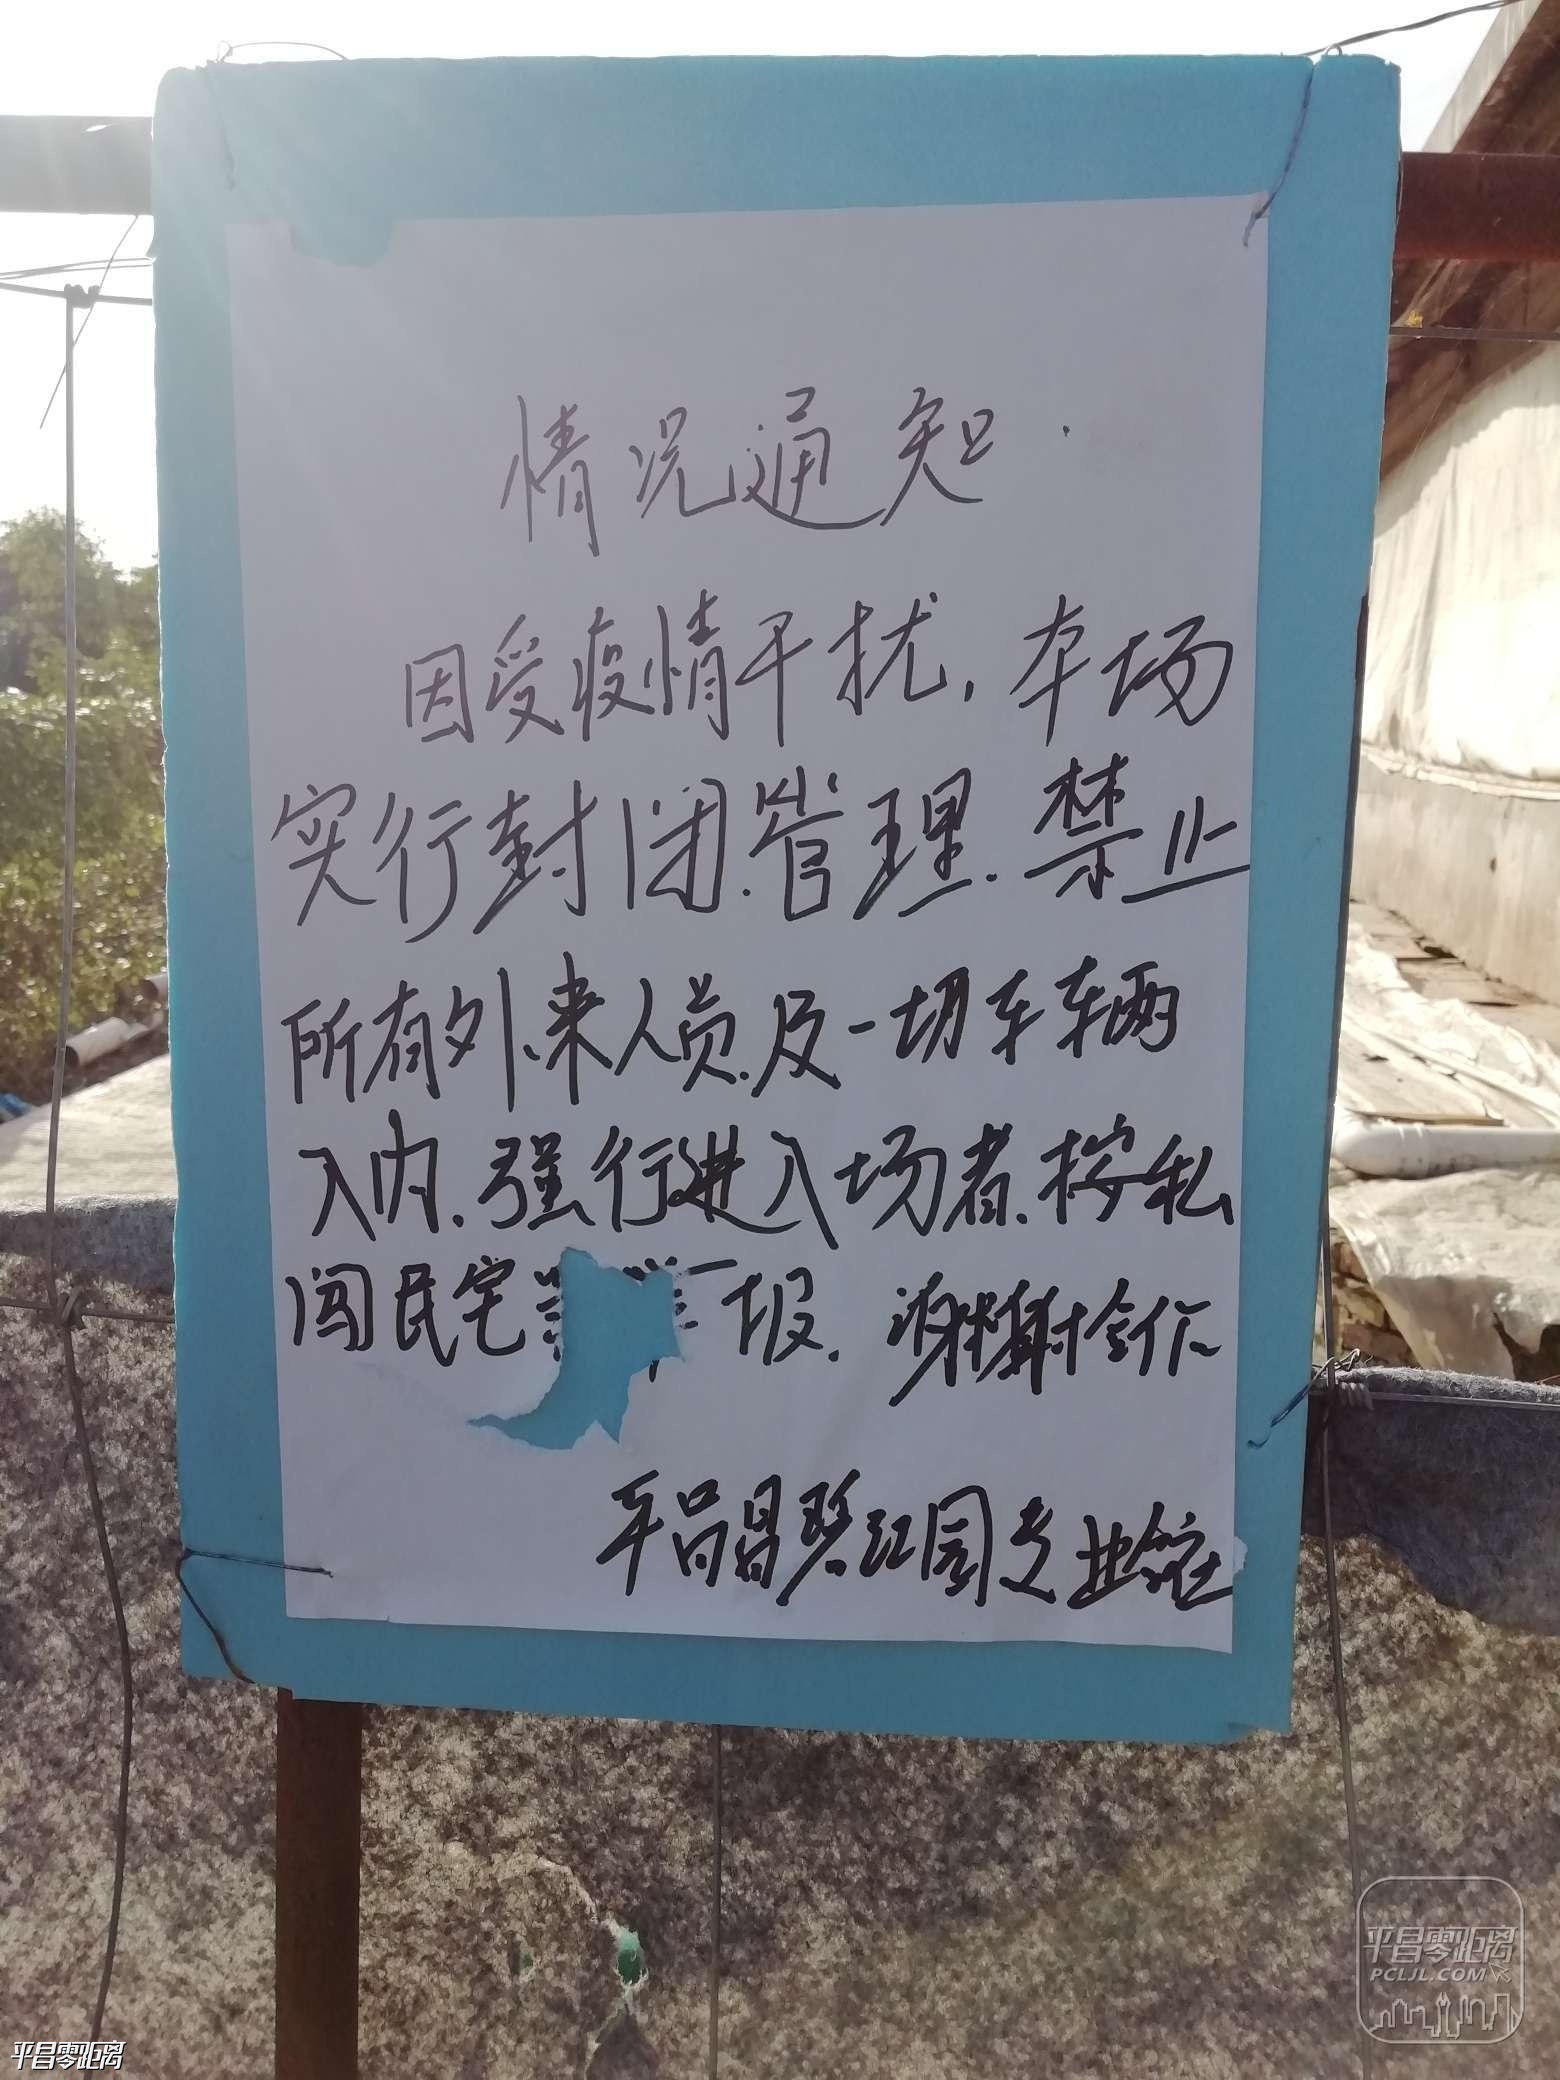 情况通知.
因受疫情干扰，本场
实行封闭.管理.禁止
所有外来人员.及一切车车辆
入内.强行进入场者.按私
闯民宅 报. 谢谢合作
平昌昌碧江园
平昌零距离
PCLJL.COM
平昌零距离